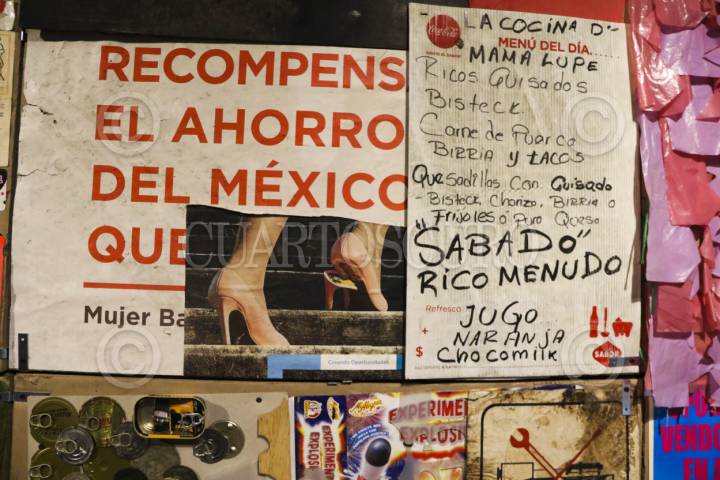 RECOMPENS
EL AHORRO
DEL MÉXICO
QUE
Mujer Ba
Creando Oportunidades
CUARTOSCURO
Coca-Cola
LA COCINA D'
MENÚ DEL DÍA
MAMA LUPE
Ricos Guisados
Bisteck
Carne de Puerco
BIRRIA y TACOS
Quesadillas Con Guisado
-Bisteck, Chorizo, BIRRIA o
Frijoles ó Puro Queso
"SABADO"
RICO MENUDO
Refresco
+
$
JUGO
NARANJA
Chocomilk
SABOR
EXPERIM
EXPLOSI
EXPERIME
EXPLOSI
VENDO
EN A